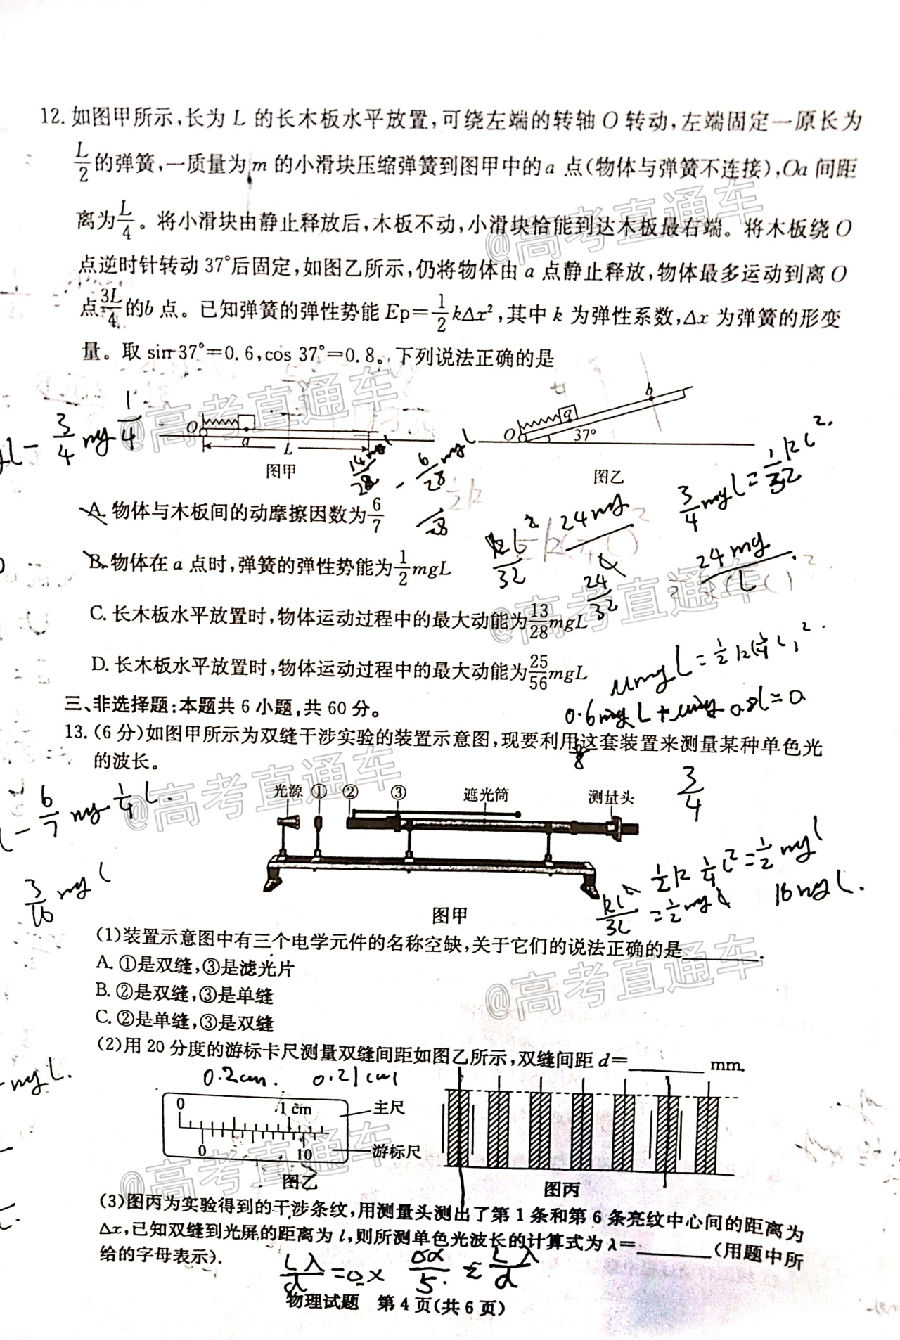 12. 如图甲所示,长为 L 的长木板水平放置,可绕左端的转轴 O 转动,左端固定一原长为
L/2 的弹簧,一质量为 m 的小滑块压缩弹簧到图甲中的 a 点(物体与弹簧不连接),Oa 间距
离为 L/4 。将小滑块由静止释放后,木板不动,小滑块恰能到达木板最右端。将木板绕 O
点逆时针转动 37°后固定,如图乙所示,仍将物体由 a 点静止释放,物体最多运动到离 O
点 3L/4 的 b 点。已知弹簧的弹性势能 Ep=1/2 kΔx²,其中 k 为弹性系数,Δx 为弹簧的形变
量。取 sin 37°=0.6,cos 37°=0.8。下列说法正确的是
O a L
图甲
O a b 37°
图乙
A. 物体与木板间的动摩擦因数为 6/7
B. 物体在 a 点时,弹簧的弹性势能为 1/2 mgL
C. 长木板水平放置时,物体运动过程中的最大动能为 13/28 mgL
D. 长木板水平放置时,物体运动过程中的最大动能为 25/56 mgL
3/4 mgL = 1/32 kL²
24mg/L
μmgL = 1/2 k(1/4 L)²
三、非选择题:本题共 6 小题,共 60 分。
13. (6 分)如图甲所示为双缝干涉实验的装置示意图,现要利用这套装置来测量某种单色光
的波长。
光源 ① ② ③ 遮光筒 测量头
图甲
3/4
16mgL
3/16 mgL
(1)装置示意图中有三个电学元件的名称空缺,关于它们的说法正确的是________.
A. ①是双缝,③是滤光片
B. ②是双缝,③是单缝
C. ②是单缝,③是双缝
(2)用 20 分度的游标卡尺测量双缝间距如图乙所示,双缝间距 d=________ mm.
0.2cm. 0.21cm
0 1 cm 主尺
0 10 游标尺
图乙
图丙
(3)图丙为实验得到的干涉条纹,用测量头测出了第 1 条和第 6 条亮纹中心间的距离为
Δx,已知双缝到光屏的距离为 l,则所测单色光波长的计算式为 λ=________(用题中所
给的字母表示).
物理试题 第 4 页(共 6 页)
@高考直通车
@高考直通车
@高考直通车
@高考直通车
@高考直通车
@高考直通车